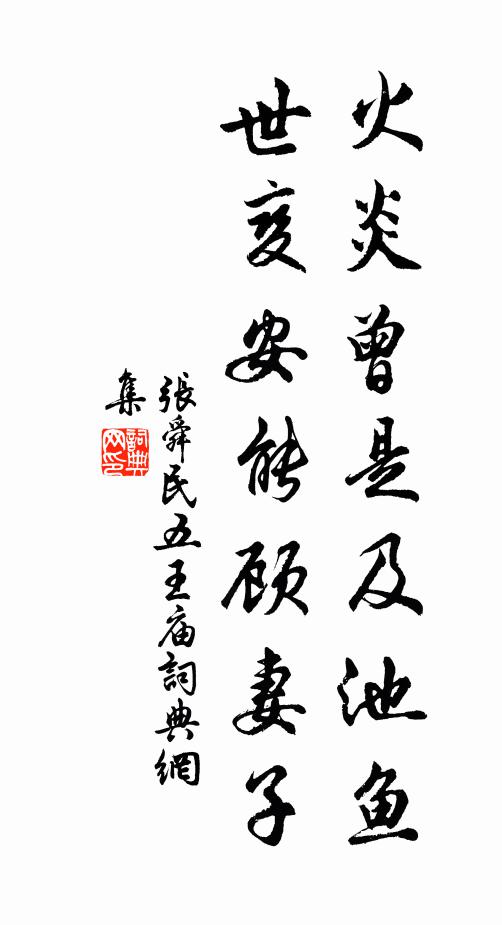 火炎曾是及池鱼
世变安能顾妻子
張舜民五王庙詞典網
集
詞典网印